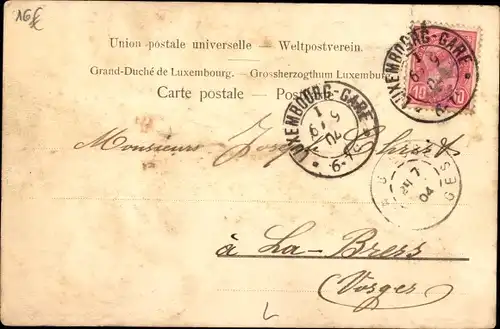 16 £
Union postale universelle. – Weltpostverein.
Grand-Duché de Luxembourg. – Grossherzogthum Luxemburg
Carte postale – Post
LUXEMBOURG-GARE
6-7
10
LUXEMBOURG-GARE
1
5 9
04
6-7
Monsieur Joseph
7
04
à La-Bress
(Vosges)
L